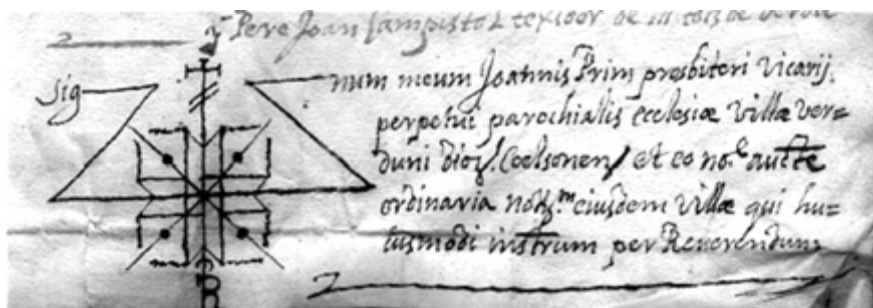 Pere Joan Sampisto L texidor de
Sig num meum Joannis Prim presbiteri vicarij
perpetui parochialis ecclesiæ villæ ver=
duni dioz. Ceelsonen et eo no.e aucte
ordinaria notz.m eiusdem villæ qui hu=
iusmodi instrum per Reverendum